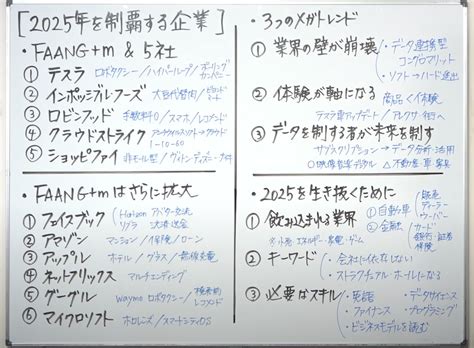 [2025年を制覇する企業]
・FAANG+m & 5社
① テスラ ロボタクシー/ハイパーループ/ボーリングカンパニー
② インポッシブル・フーズ 大豆代替肉/ビヨンドミート
③ ロビンフッド 手数料0/スマホ/レコメンド
④ クラウドストライク アンチウイルスソフト→クラウド
1-10-60
⑤ ショッピファイ 非モール型/ヴィトン・ディズニー・ナイキ
・FAANG+mはさらに拡大
① フェイスブック
リブラ 決済・送金
② アマゾン マンション/保険/ローン
③ アップル ホテル/グラス/動画発電
④ ネットフリックス マルチエンディング
⑤ グーグル waymo ロボタクシー/検索前レコメンド
⑥ マイクロソフト ホロレンズ/スマートシティOS
・3つのメガトレンド
① 業界の壁が崩壊
・データ連携型コングロマリット
・ソフト→ハード逆出
② 体験が軸になる 商品<体験
テスラ車アップデート/アレクサ 今日へ
③ データを制する者が未来を制す
サブスクリプション→データ分析・活用
○映像音楽デジタル △不動産・車・家具
・2025を生き抜くために
① 飲み込まれる業界
①自動車 販売 ディーラー ウーバー
②金融 カード 銀行・証券 保険
※小売・エネルギー・家電・ゲーム
② キーワード
・会社に依存しない
・ストラクチュアル・ホールになる
③ 必要なスキル
・英語 ・データサイエンス
・ファイナンス ・プログラミング
・ビジネスモデルを読む